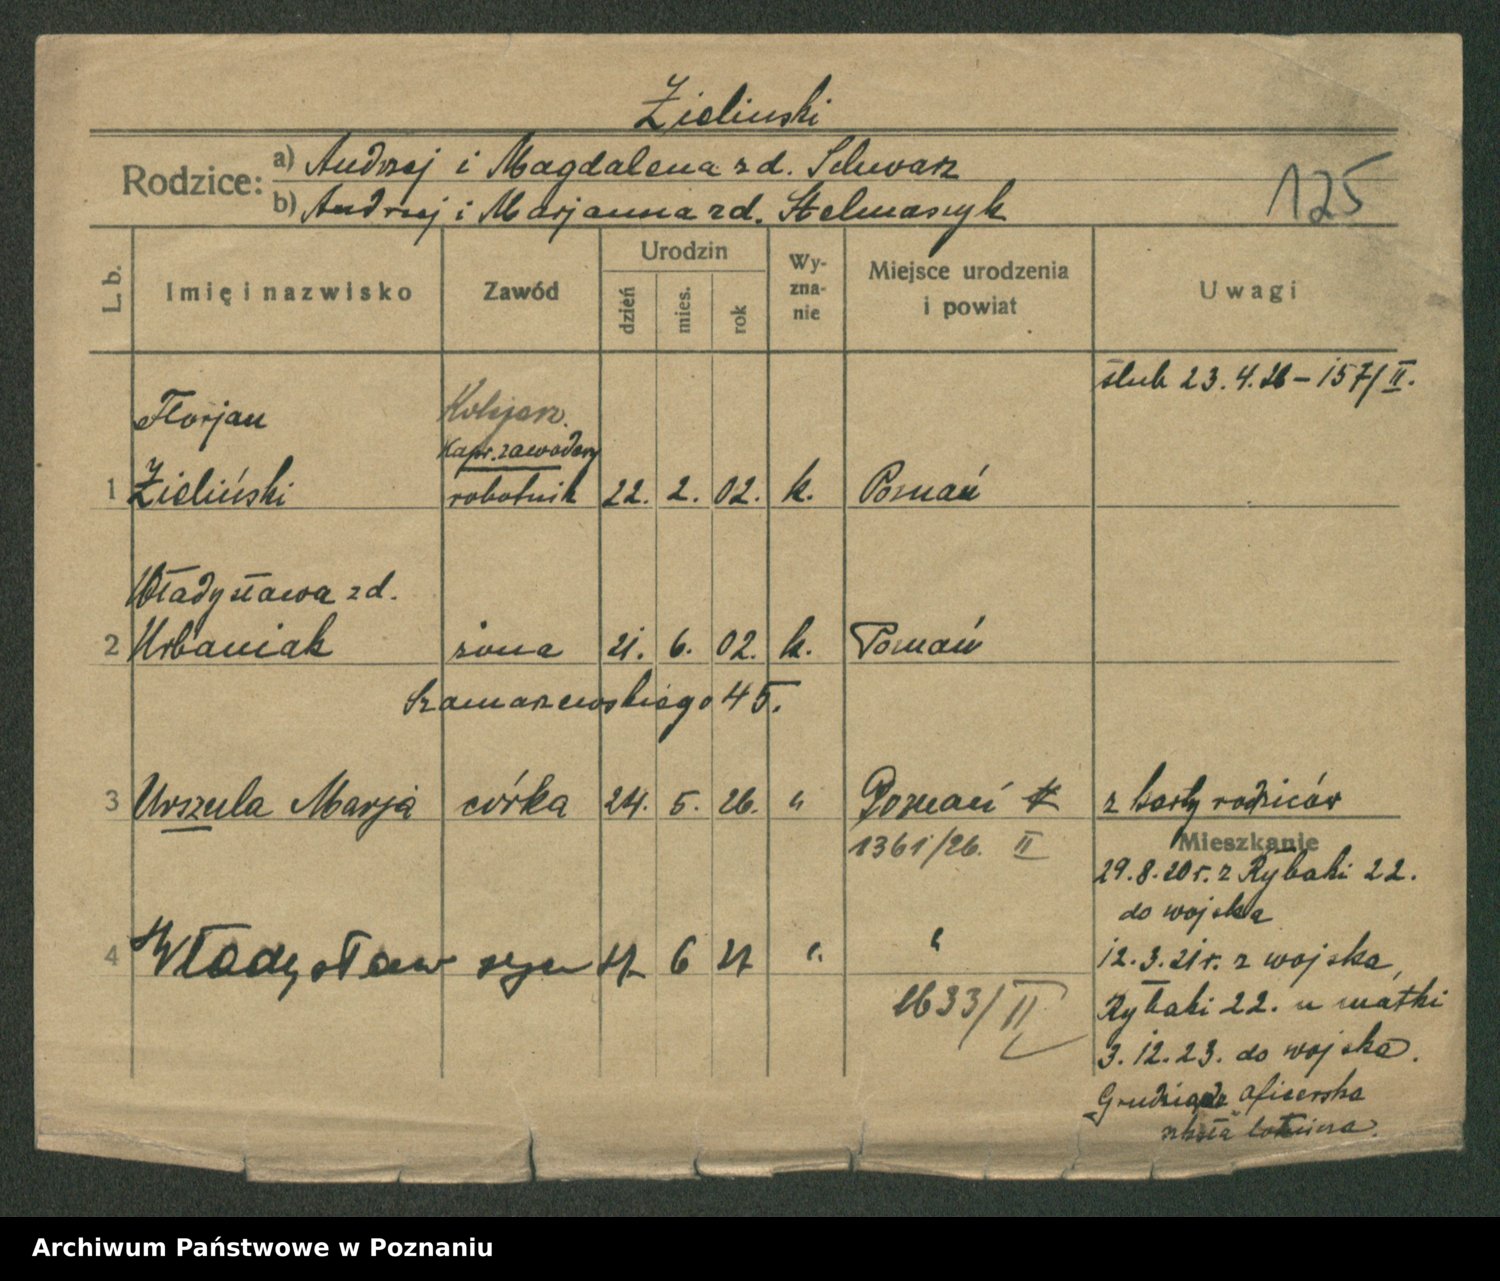 Zieliński
Rodzice: a) Andrzej i Magdalena zd. Schwarz
b) Andrzej i Marjanna zd. Stelmaszyk
125
L. b. Imię i nazwisko Zawód Urodzin dzień mies. rok Wy-zna-nie Miejsce urodzenia i powiat Uwagi
ślub 23.4.26 – 157/II.
Florjan Kolejarz.
Kapr. zawodowy
1 Zieliński robotnik 22. 2. 02. k. Poznań
Władysława zd.
2 Urbaniak żona 21. 6. 02. k. Poznań
Szamarzewskiego 45.
3 Urszula Marja córka 24. 5. 26. " Poznań z karty rodziców
1361/26. II
Mieszkanie
29.8.20 r. z Rybaki 22.
do wojska
4 Władysław syn 6 27 " "
12.3.21 r. z wojska,
1633/II
Rybaki 22. u matki
3.12.23. do wojska.
Grudziądz oficerska
szkoła lotnicza.
Archiwum Państwowe w Poznaniu